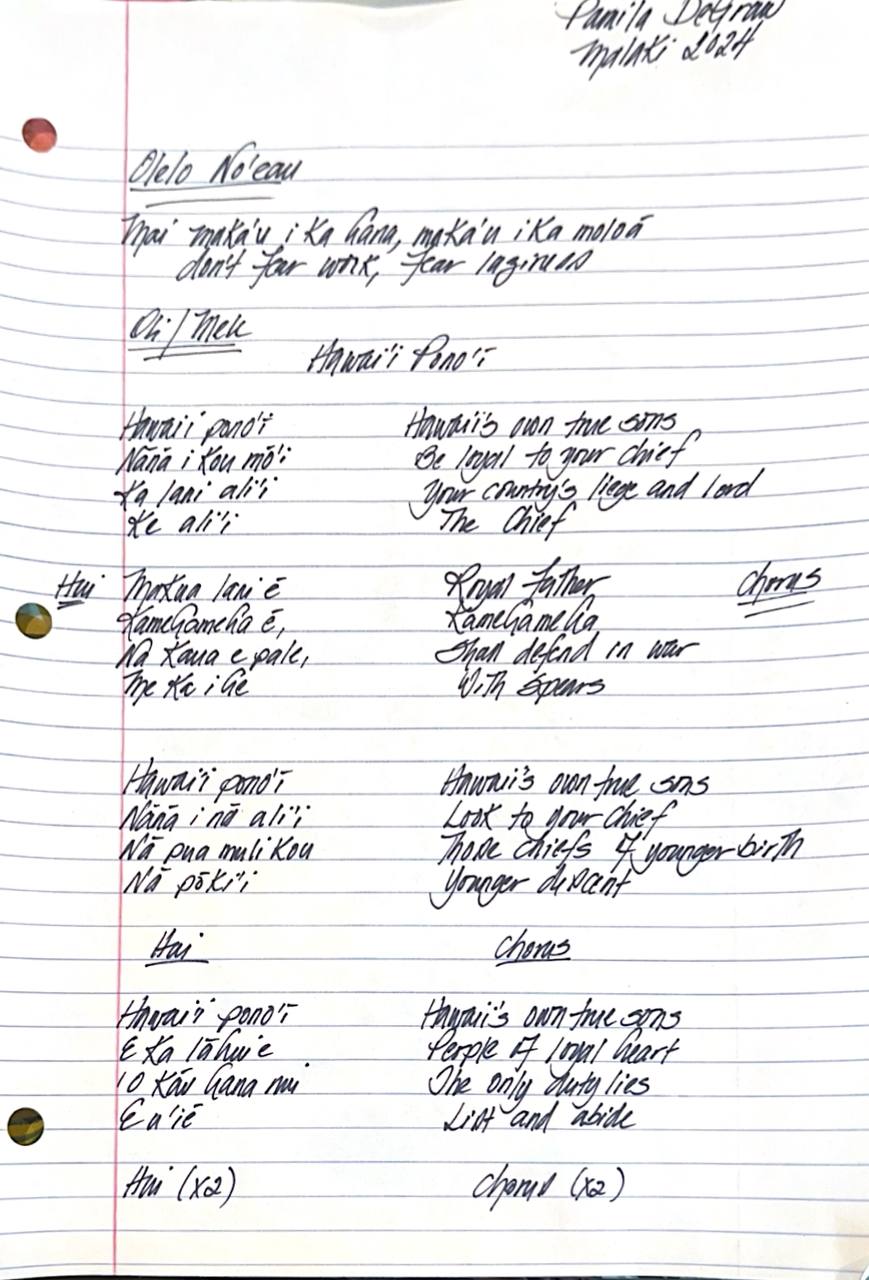 Pamila DeGraw
Malaki 2024
Olelo No'eau
Mai maka'u i ka hana, maka'u i ka moloā
don't fear work, fear laziness
Oli / Mele
Hawai'i Pono'ī
Hawai'i pono'ī Hawaii's own true sons
Nānā i kou mō'ī Be loyal to your chief
Ka lani ali'i Your country's liege and lord
Ke ali'i The Chief
Hui Makua lani ē Royal father Chorus
Kamehameha ē, Kamehameha
Na kaua e pale, Shall defend in war
Me ka ihe With spears
Hawai'i pono'ī Hawaii's own true sons
Nānā i nā ali'i Look to your chief
Nā pua muli kou Those chiefs of younger birth
Nā pōki'i Younger descent
Hui Chorus
Hawai'i pono'ī Hawaii's own true sons
E ka lāhui e People of loyal heart
'O kāu hana nui The only duty lies
E u'iē List and abide
Hui (x2) Chorus (x2)